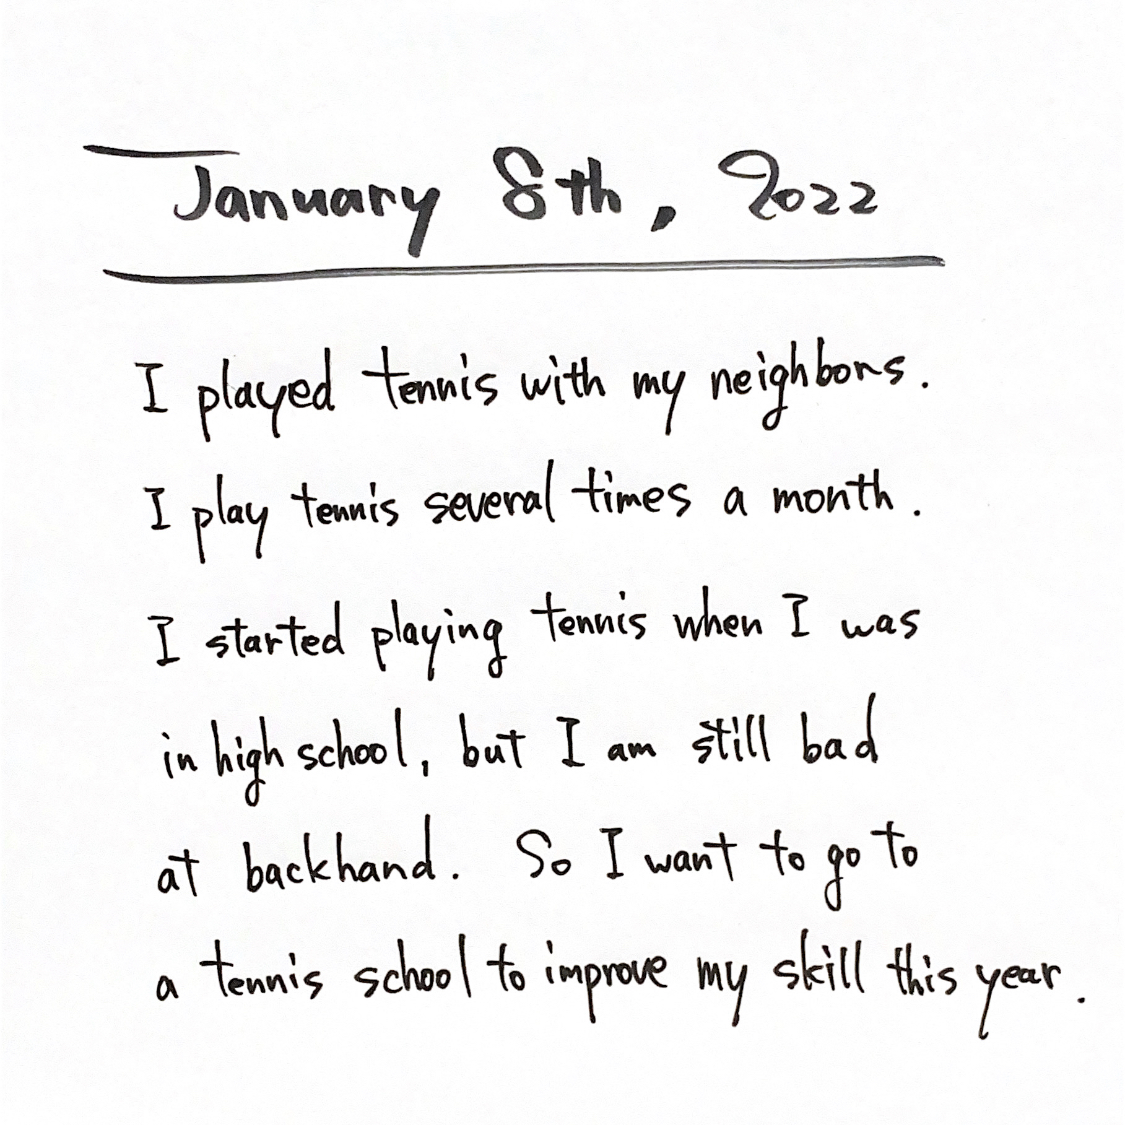 January 8th, 2022
I played tennis with my neighbors.
I play tennis several times a month.
I started playing tennis when I was
in high school, but I am still bad
at backhand. So I want to go to
a tennis school to improve my skill this year.